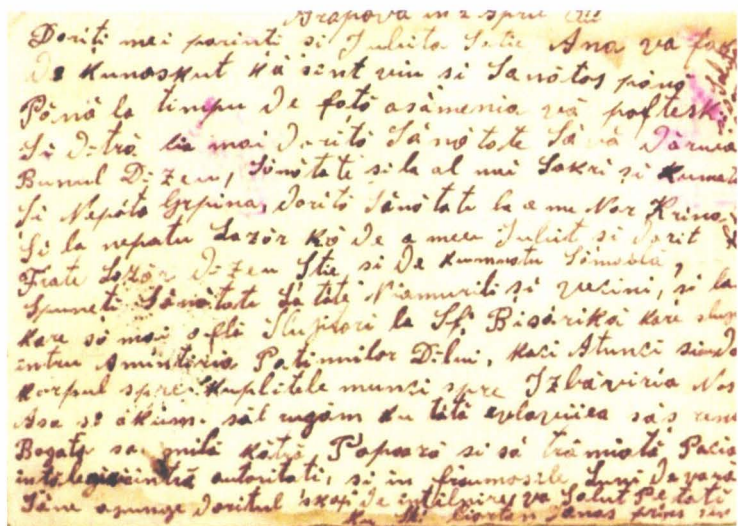 Arapova in 2 April
Doriti mei parinti si Iubita Sotie Ana va fac
De Kunoskut Kă sint viu si Sanătos pănă
Pănă la timpu De fată asămenia vă poftesk
Si D-tră cia mai Dorită Sănătate Săvă Dăruia
Bunul D-Zeu, Sănătate si la al mei Sokri si Kumnat
Si Nepăta Grpina, Dorită Sănătate la a me Nor Krina
Si la nepatu Lazăr Kă De a meu Iubit si Dorit
Frate Lazăr D-Zeu Stie, si De Kumnatu
Spuneti Sănătate La tăte Niamurili si vecini, si la
Kare să mai află Slujitori la Sf. Bisărikă Kare
intru Amintiria Patimilor D-lui, Kaci Atunci
Korpul spre Kuplitele munci spre Izbăviria Nos
Asa si akum săl rugăm Ku tătă evlaviiea săs
Bogata sa milă kătră Popoară si să trămiată Pacia
intălegiri intră autoritati, si in frumosile Luni De vară
Săne agiunge Doritul De intilnire, va Salut Pe tati
Ku